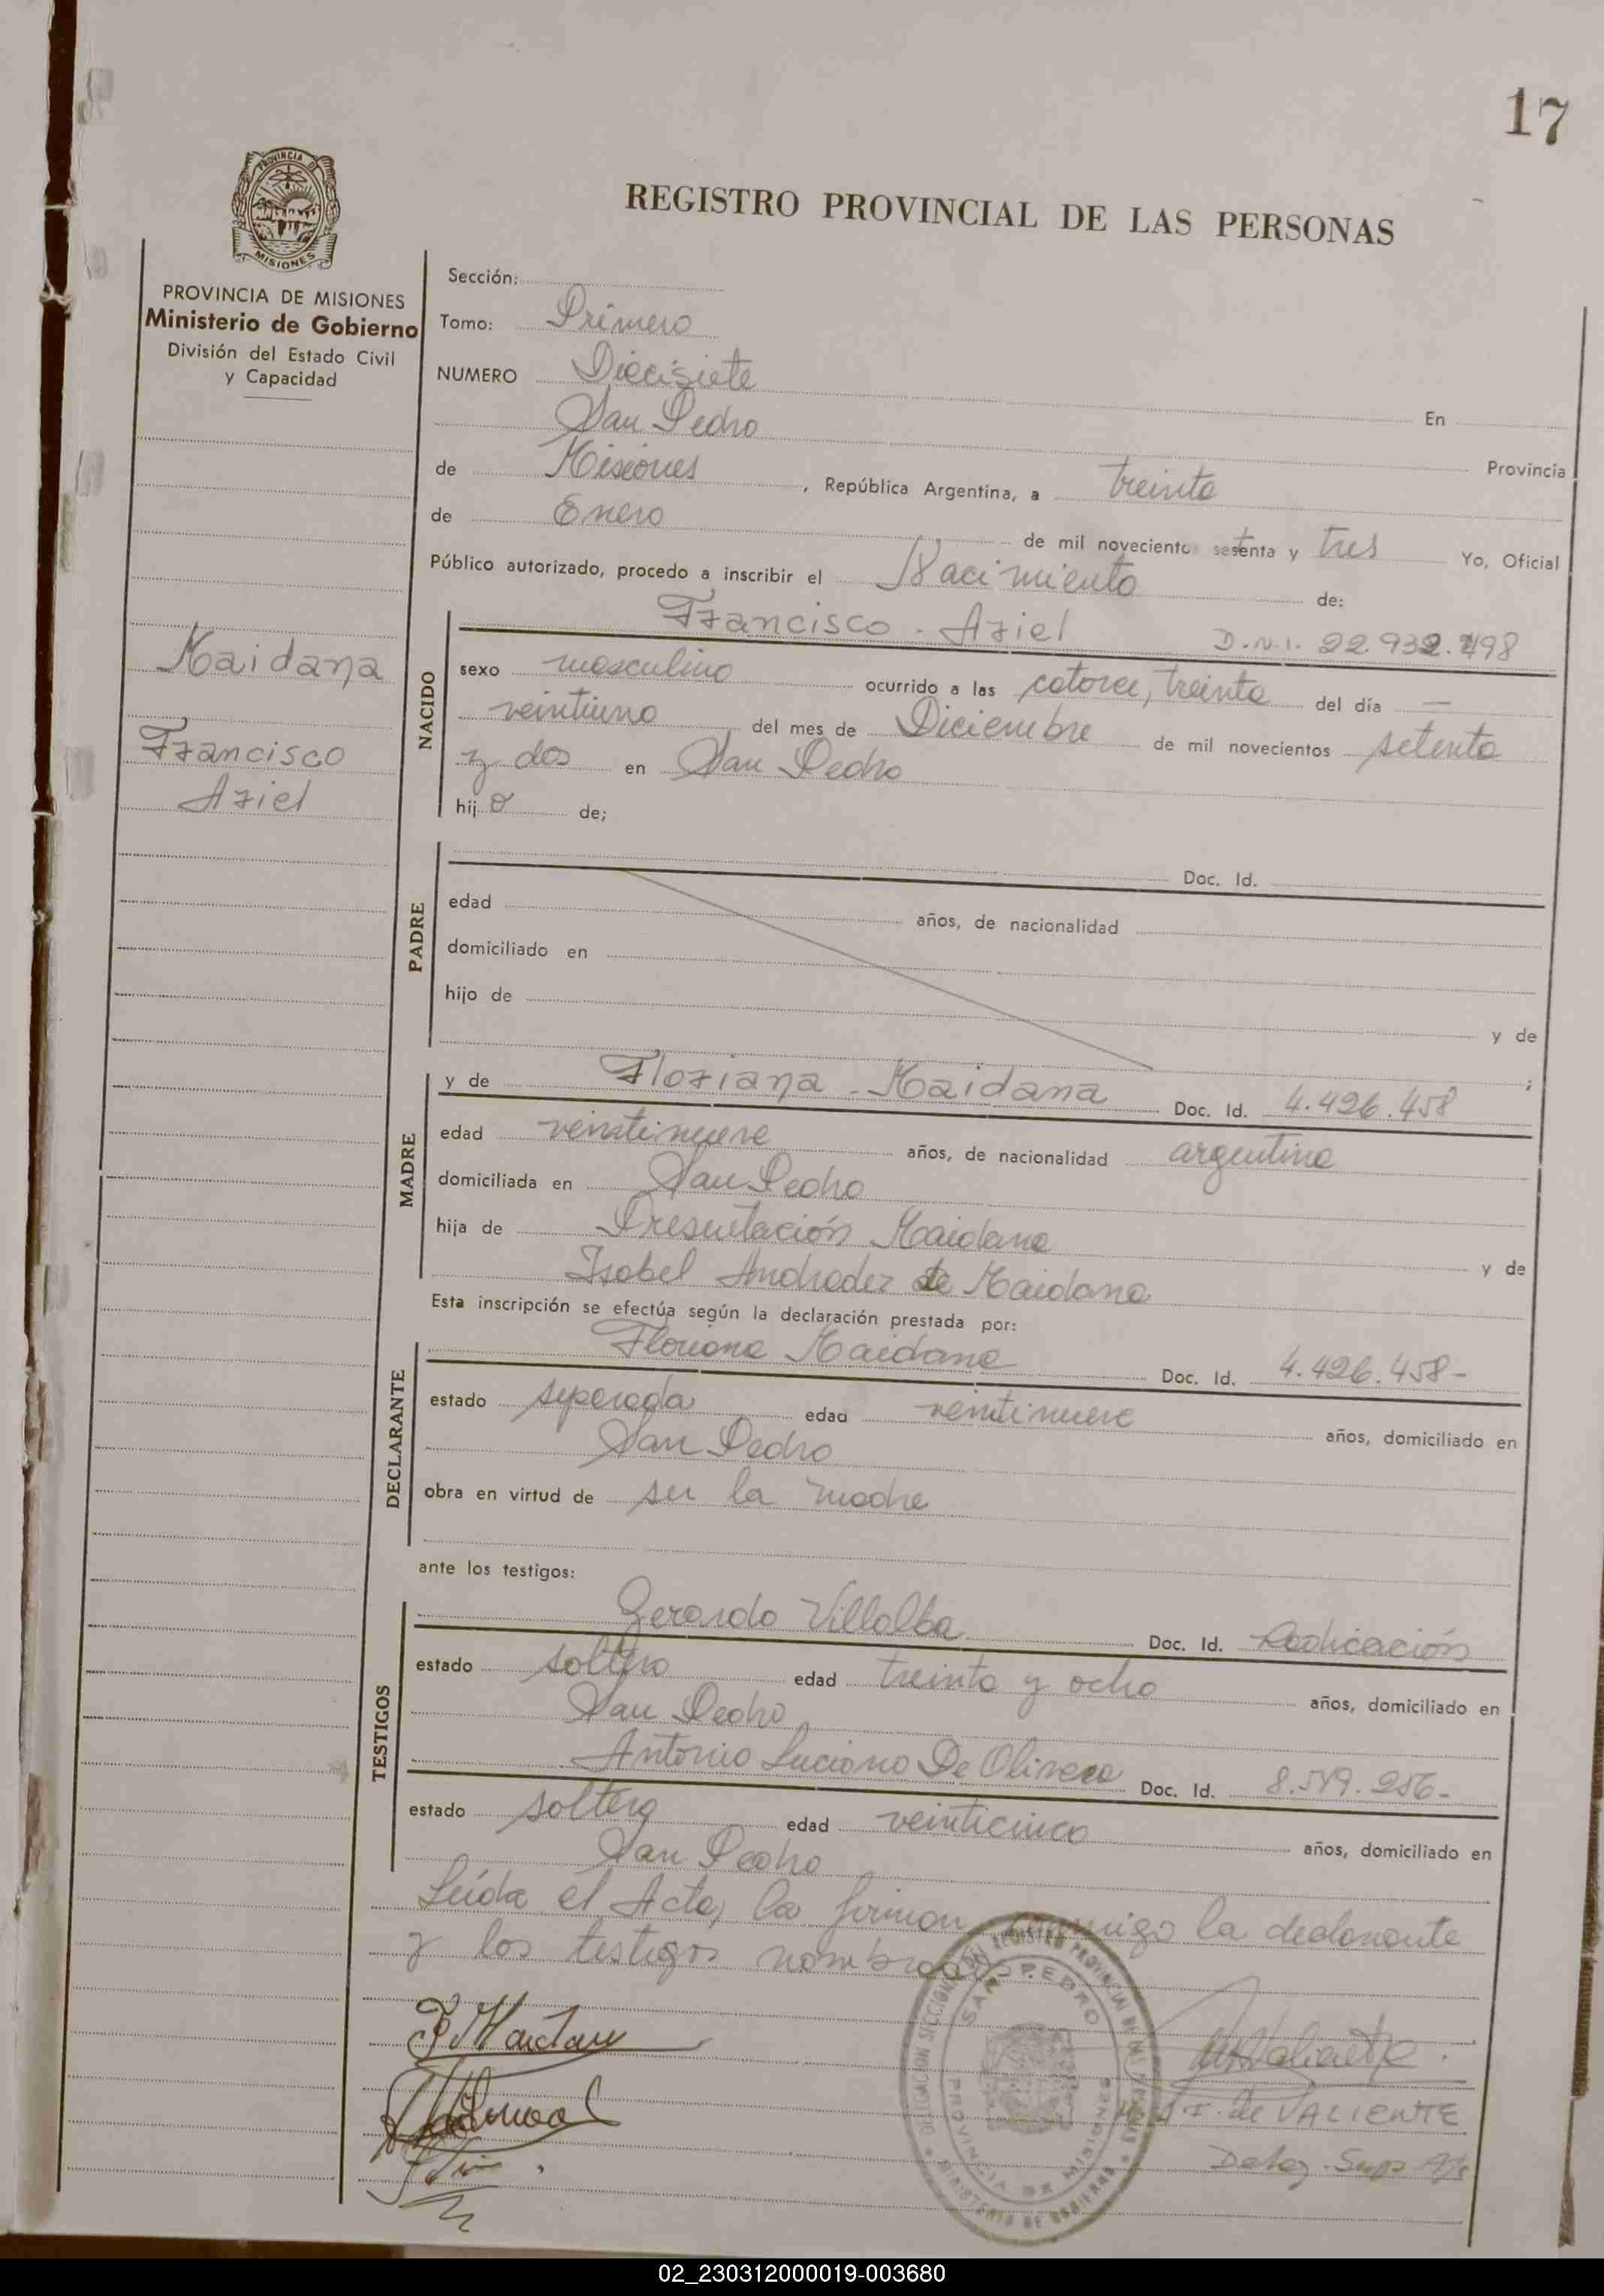 17
PROVINCIA DE
MISIONES
REGISTRO PROVINCIAL DE LAS PERSONAS
PROVINCIA DE MISIONES
Ministerio de Gobierno
División del Estado Civil
y Capacidad
Maidana
Francisco
Ariel
Sección:
Tomo: Primero
NUMERO Diecisiete
En
San Pedro
Provincia
de Misiones , República Argentina, a treinta
de Enero de mil novecientos setenta y tres Yo, Oficial
Público autorizado, procedo a inscribir el Nacimiento de:
NACIDO
Francisco - Ariel D.N.I. 22.932.498
sexo masculino ocurrido a las catorce, treinta del día —
veintiuno del mes de Diciembre de mil novecientos setenta
y dos en San Pedro
hij o de;
PADRE
Doc. Id.
edad años, de nacionalidad
domiciliado en
hijo de
y de
;
MADRE
y de Floriana - Maidana Doc. Id. 4.426.458
edad veintinueve años, de nacionalidad argentina
domiciliada en San Pedro
hija de Presentación Maidana
y de
Isabel Andradez de Maidana
Esta inscripción se efectúa según la declaración prestada por:
DECLARANTE
Floriana Maidana Doc. Id. 4.426.458-
estado separada edad veintinueve años, domiciliado en
San Pedro
obra en virtud de ser la madre
ante los testigos:
TESTIGOS
Gerardo Villalba Doc. Id. Radicación
estado soltero edad treinta y ocho años, domiciliado en
San Pedro
Antonio Luciano De Olivera Doc. Id. 8.549.256-
estado soltero edad veinticinco años, domiciliado en
San Pedro
Leída el Acta, la firman conmigo la declarante
y los testigos nombrados
SAN PEDRO
PROVINCIA DE MISIONES
MINISTERIO DE GOBIERNO
F. Maidana
de VALIENTE
Deleg. Sup.
02_230312000019-003680